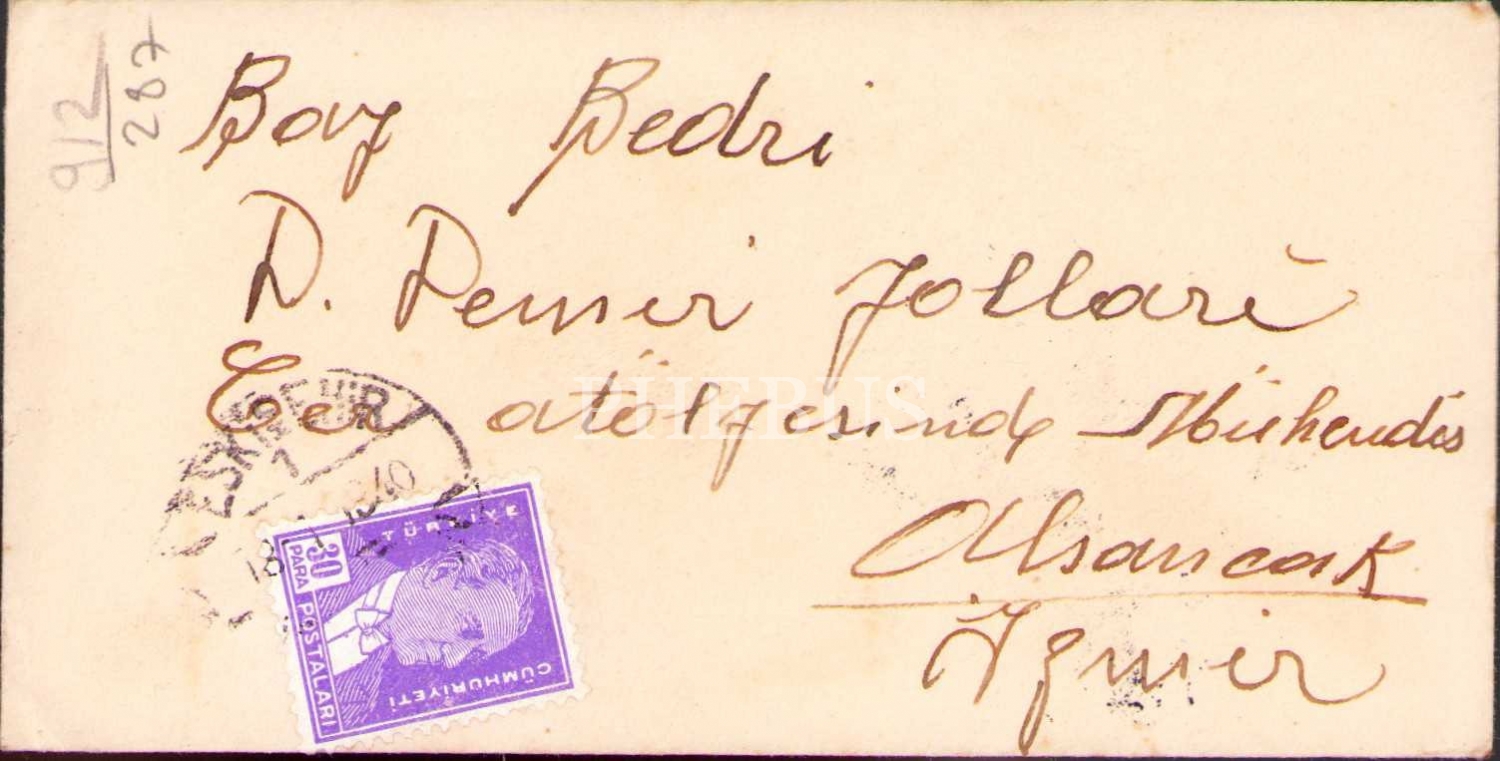 912
287
Bay Bedri
D. Demir Yolları
Cer atölyesinde Mühendis
Alsancak
İzmir
ESKİŞEHİR
1
1940
TÜRKİYE
30
PARA
POSTALARI
CÜMHURİYETİ
PHEBUS